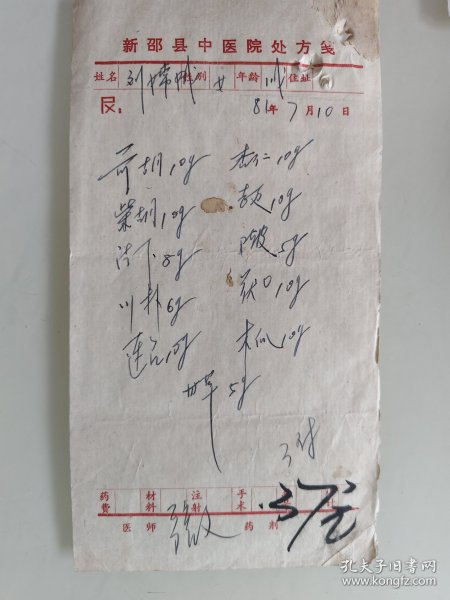 新邵县中医院处方笺
姓名 刘 性别 女 年龄 住址
R: 81年7月10日
前胡10g 杏仁10g
柴胡10g 10g
法下8g 陈皮5g
川朴6g 10g
连召10g 木瓜10g
甘草5g
3付
药费 材料 注射 手术
医师 药剂
.37元
孔夫子旧书网
www.kongfz.com